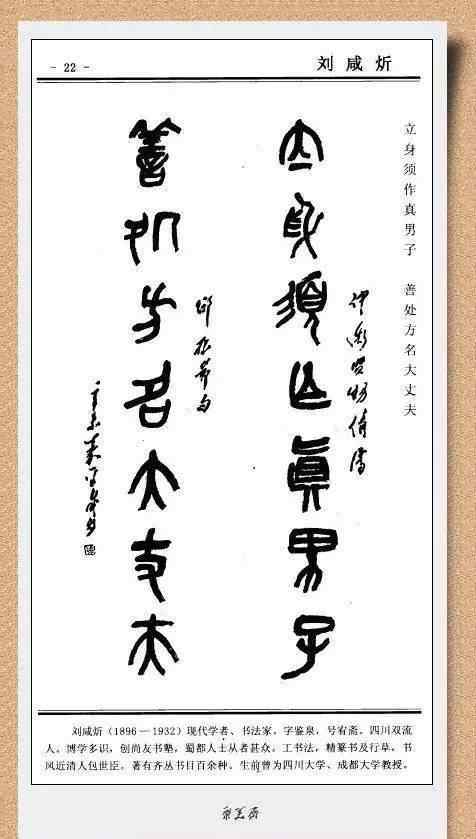 - 22 -
刘咸炘
立身须作真男子 善处方名大丈夫
立身須作真男子
善処方名大丈夫
邵尧夫句
刘咸炘(1896—1932)现代学者、书法家,字鉴泉,号宥斋。四川双流
人。博学多识,创尚友书塾,蜀都人士从者甚众。工书法,精篆书及行草,书
风近清人包世臣。著有齐丛书目百余种。生前曾为四川大学、成都大学教授。